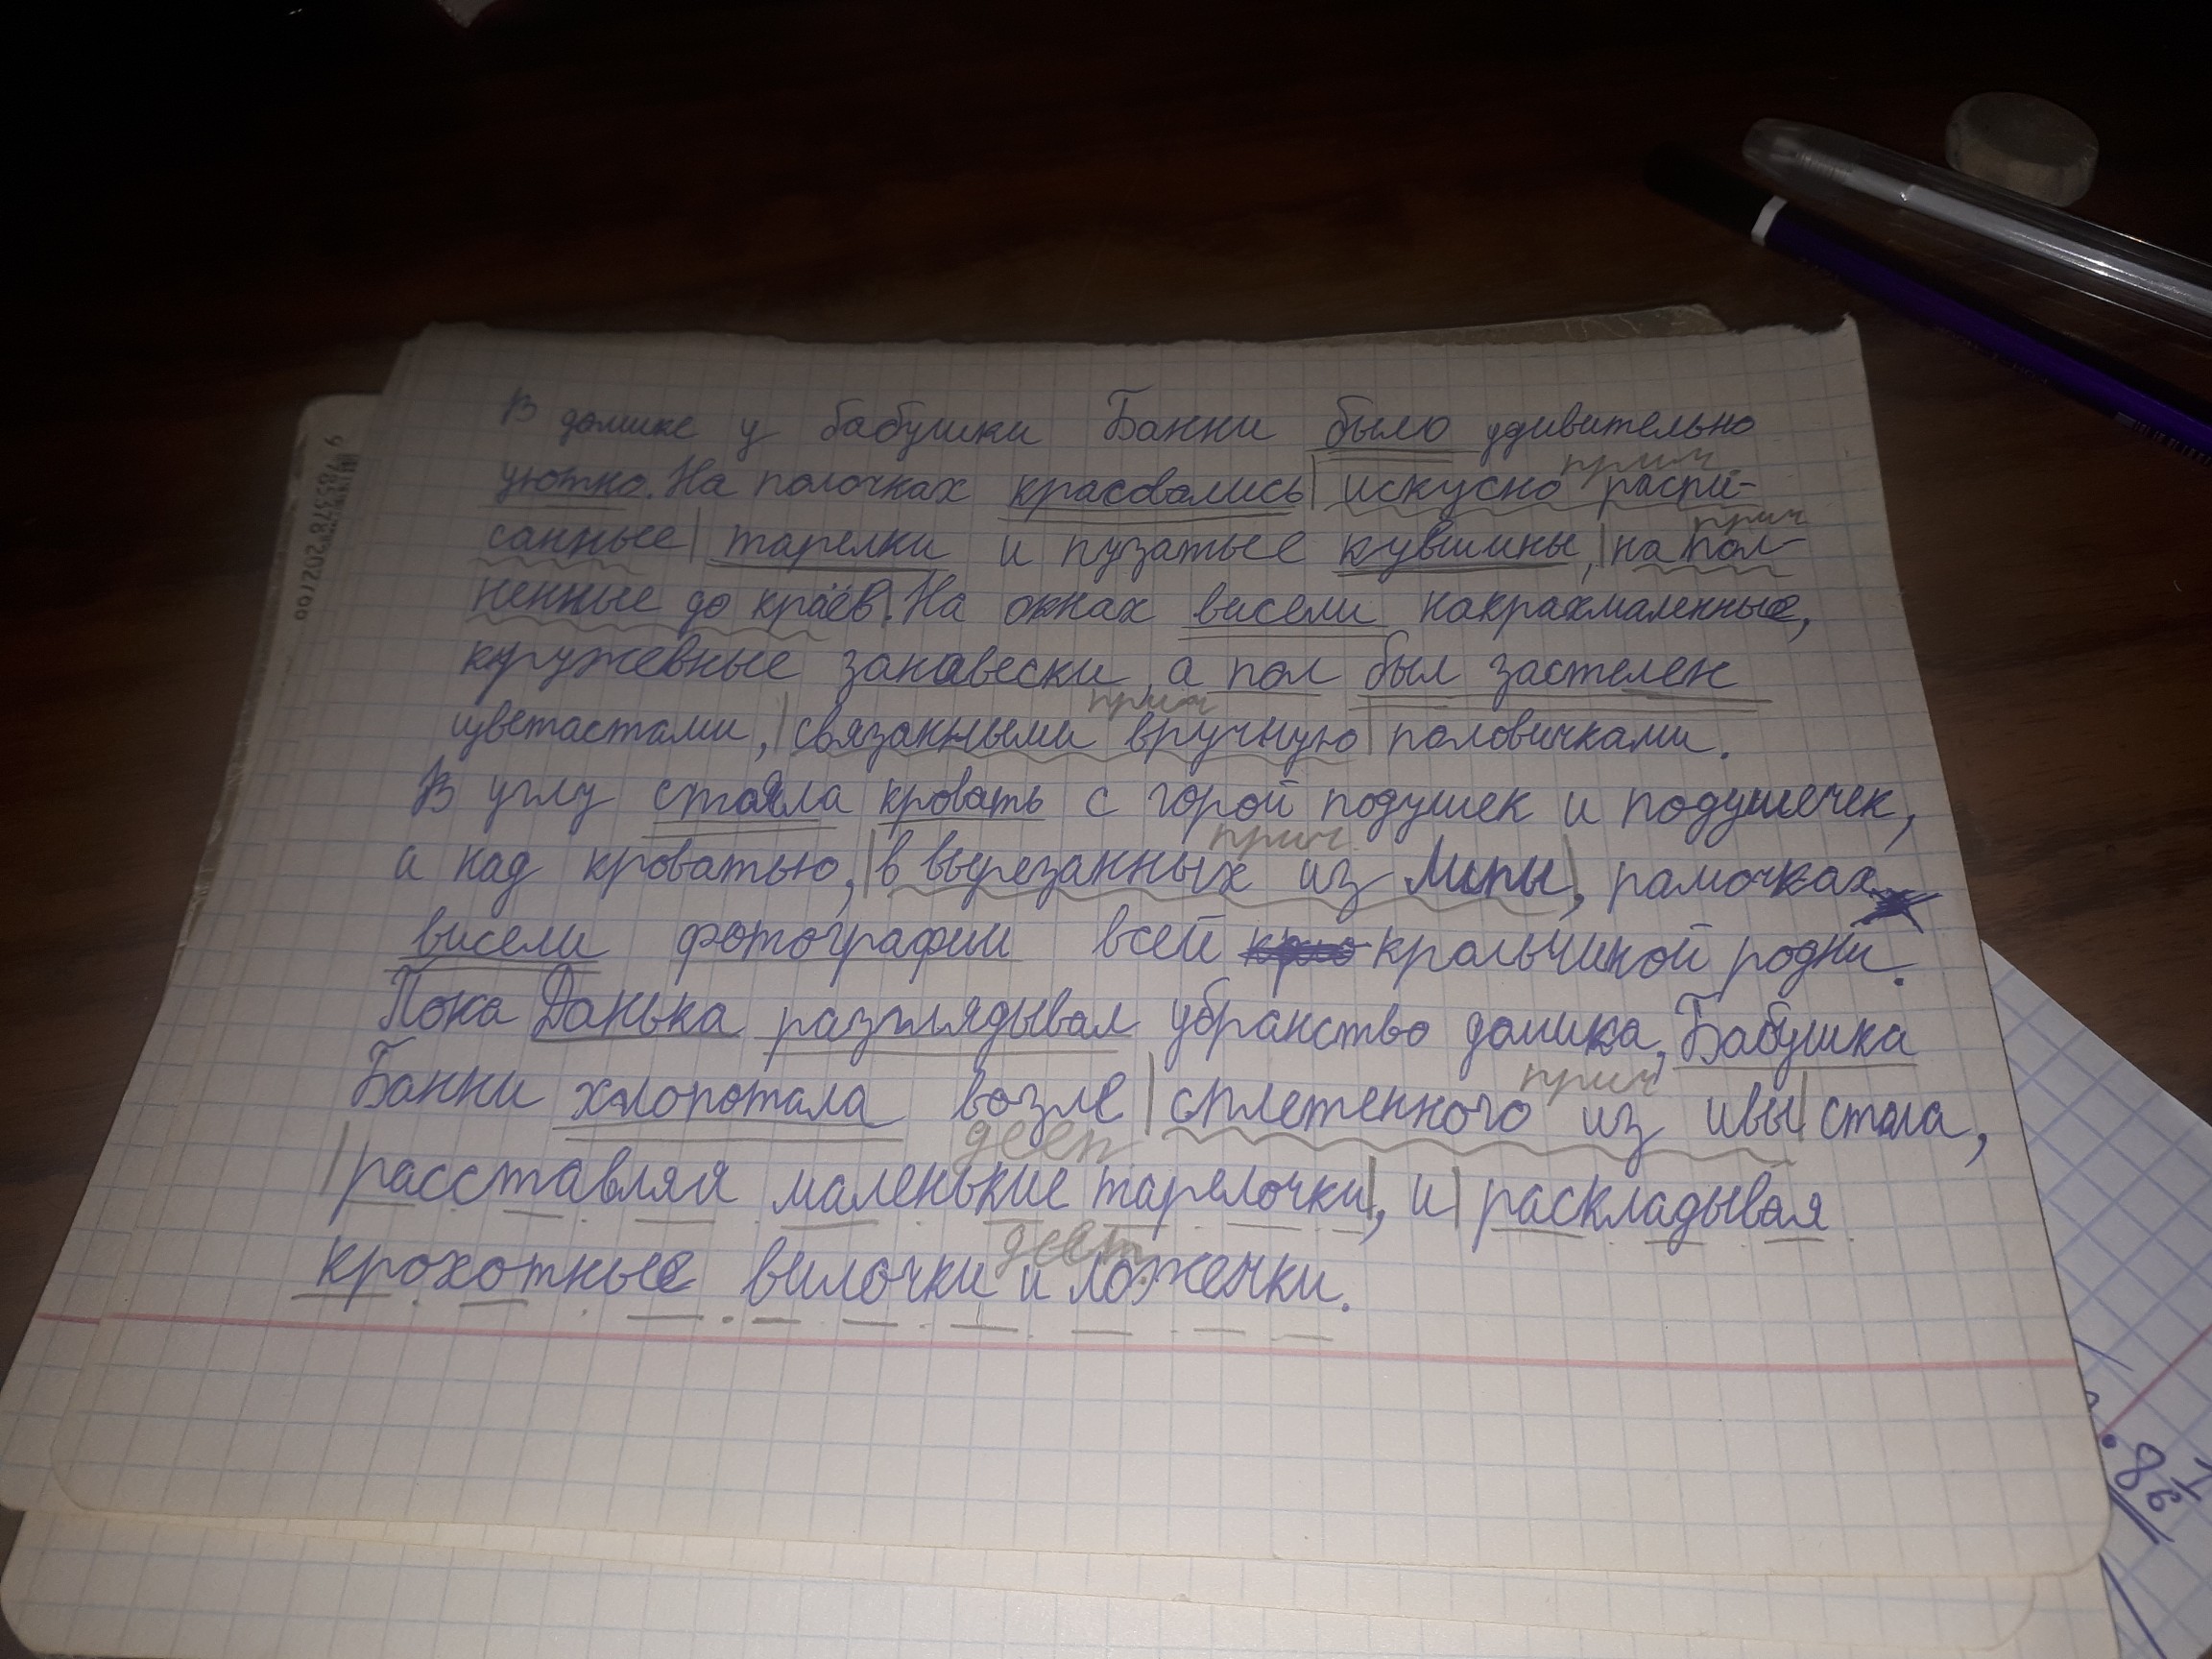 В домике у бабушки Банни было удивительно
уютно. На полочках красовались | искусно распи-
прич
санные | тарелки и пузатые кувшины, | напол-
прич
ненные до краёв. На окнах висели накрахмаленные,
кружевные занавески, а пол был застелен
цветастами, | связанными вручную | половичками.
прич
В углу стояла кровать с горой подушек и подушечек,
а над кроватью, | в вырезанных из Липы |, рамочках
прич
висели фотографии всей крольчиной родни.
Пока Данька разглядывал убранство домика, Бабушка
Банни хлопотала возле | сплетенного из ивы | стола,
прич
| расставляя маленькие тарелочки |, и | раскладывая
дееп
крохотные вилочки и ложечки.
дееп.